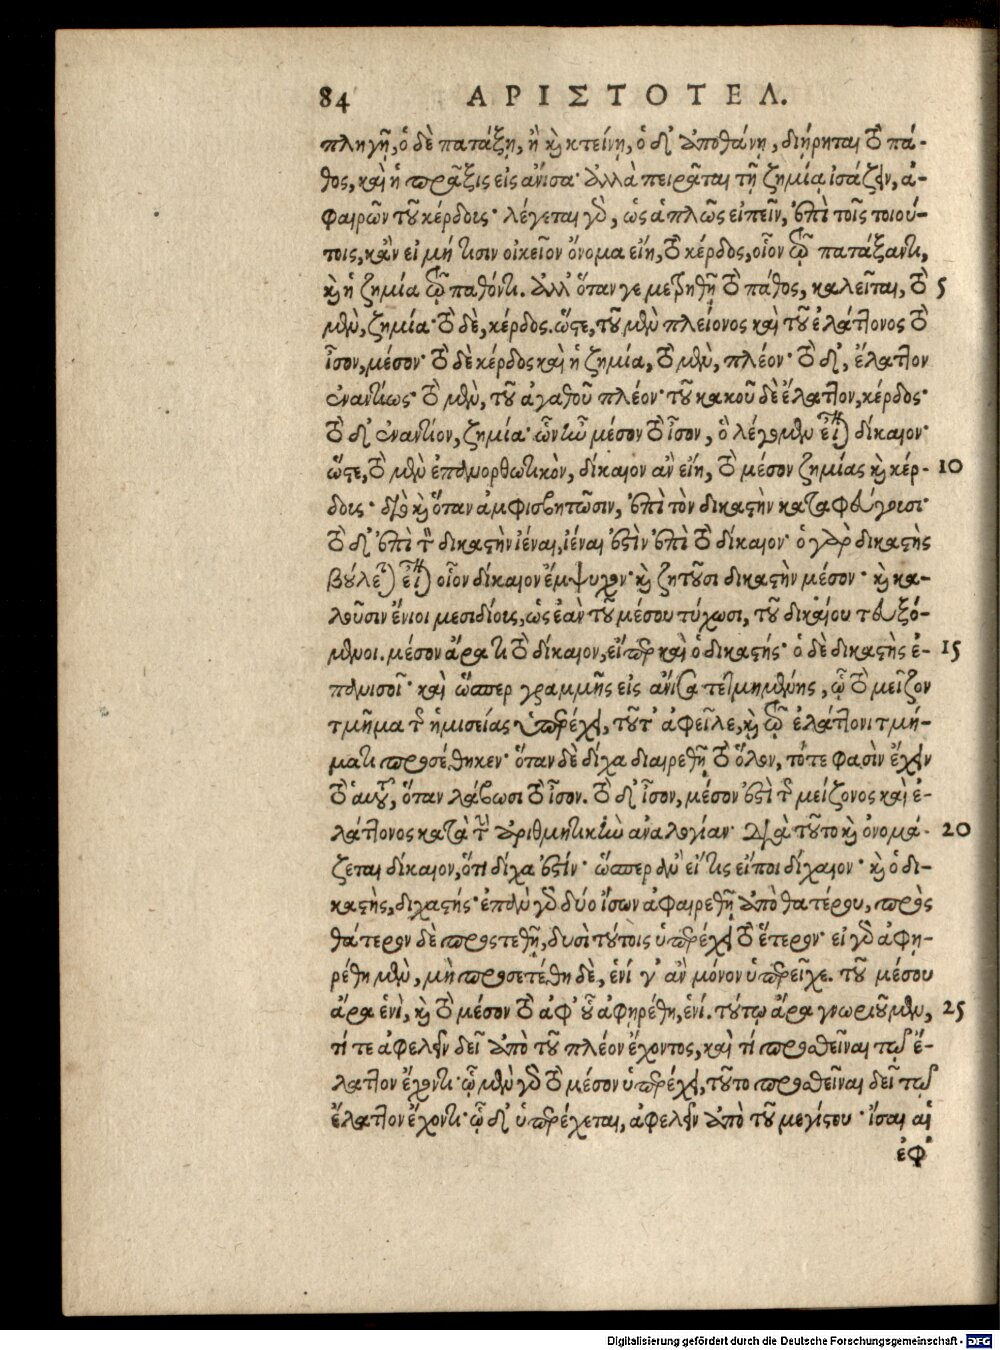 84 ΑΡΙΣΤΟΤΕΛ.
πληγῇ, ὁ δὲ πατάξῃ, ἢ καὶ κτείνῃ, ὁ δ' ἀποθάνῃ, διῄρηται τὸ πά-
θος, καὶ ἡ πρᾶξις εἰς ἄνισα· ἀλλὰ πειρᾶται τῇ ζημίᾳ ἰσάζειν, ἀ-
φαιρῶν τοῦ κέρδους· λέγεται γὰρ, ὡς ἁπλῶς εἰπεῖν, ἐπὶ τοῖς τοιού-
τοις, κἂν εἰ μή τισιν οἰκεῖον ὄνομα εἴη, τὸ κέρδος, οἷον τῷ πατάξαντι,
καὶ ἡ ζημία τῷ παθόντι. ἀλλ' ὅταν γε μετρηθῇ τὸ πάθος, καλεῖται, τὸ 5
μὲν, ζημία· τὸ δὲ, κέρδος. ὥστε, τοῦ μὲν πλείονος καὶ τοῦ ἐλάττονος τὸ
ἶσον, μέσον· τὸ δὲ κέρδος καὶ ἡ ζημία, τὸ μὲν, πλέον· τὸ δ', ἔλαττον
ἐναντίως· τὸ μὲν, τοῦ ἀγαθοῦ πλέον· τοῦ κακοῦ δὲ ἔλαττον, κέρδος·
τὸ δ' ἐναντίον, ζημία· ὧν ἦν μέσον τὸ ἶσον, ὃ λέγομεν εἶναι δίκαιον·
ὥστε, τὸ μὲν ἐπανορθωτικὸν, δίκαιον ἂν εἴη, τὸ μέσον ζημίας καὶ κέρ- 10
δους· διὸ καὶ ὅταν ἀμφισβητῶσιν, ἐπὶ τὸν δικαστὴν καταφεύγουσι·
τὸ δ' ἐπὶ τὸν δικαστὴν ἰέναι, ἰέναι ἐστὶν ἐπὶ τὸ δίκαιον· ὁ γὰρ δικαστὴς
βούλεται εἶναι οἷον δίκαιον ἔμψυχον· καὶ ζητοῦσι δικαστὴν μέσον· καὶ κα-
λοῦσιν ἔνιοι μεσιδίους, ὡς ἐὰν τοῦ μέσου τύχωσι, τοῦ δικαίου τευξό-
μενοι. μέσον ἄρα τι τὸ δίκαιον, εἴπερ καὶ ὁ δικαστής· ὁ δὲ δικαστὴς ἐ- 15
πανισοῖ· καὶ ὥσπερ γραμμῆς εἰς ἄνισα τετμημένης, ᾧ τὸ μεῖζον
τμῆμα τῆς ἡμισείας ὑπερέχει, τοῦτ' ἀφεῖλε, καὶ τῷ ἐλάττονι τμή-
ματι προσέθηκεν· ὅταν δὲ δίχα διαιρεθῇ τὸ ὅλον, τότε φασὶν ἔχειν
τὸ αὑτοῦ, ὅταν λάβωσι τὸ ἶσον. τὸ δ' ἶσον, μέσον ἐστὶ τῆς μείζονος καὶ ἐ-
λάττονος κατὰ τὴν ἀριθμητικὴν ἀναλογίαν· διὰ τοῦτο καὶ ὀνομά- 20
ζεται δίκαιον, ὅτι δίχα ἐστίν· ὥσπερ ἂν εἴ τις εἴποι δίχαιον· καὶ ὁ δι-
καστὴς, διχαστής· ἐπὰν γὰρ δύο ἴσων ἀφαιρεθῇ ἀπὸ θατέρου, πρὸς
θάτερον δὲ προςτεθῇ, δυσὶ τούτοις ὑπερέχει τὸ ἕτερον· εἰ γὰρ ἀφῃ-
ρέθη μὲν, μὴ προσετέθη δὲ, ἑνί γ' ἂν μόνον ὑπερεῖχε. τοῦ μέσου
ἄρα ἑνὶ, καὶ τὸ μέσον τὸ ἀφ' οὗ ἀφῃρέθη, ἑνί. τούτῳ ἄρα γνωριοῦμεν, 25
τί τε ἀφελεῖν δεῖ ἀπὸ τοῦ πλέον ἔχοντος, καὶ τί προσθεῖναι τῷ ἔ-
λαττον ἔχοντι· ᾧ μὲν γὰρ τὸ μέσον ὑπερέχει, τοῦτο προσθεῖναι δεῖ τῷ
ἔλαττον ἔχοντι· ᾧ δ' ὑπερέχεται, ἀφελεῖν ἀπὸ τοῦ μεγίστου· ἴσαι αἱ
ἐφ'
Digitalisierung gefördert durch die Deutsche Forschungsgemeinschaft - DFG